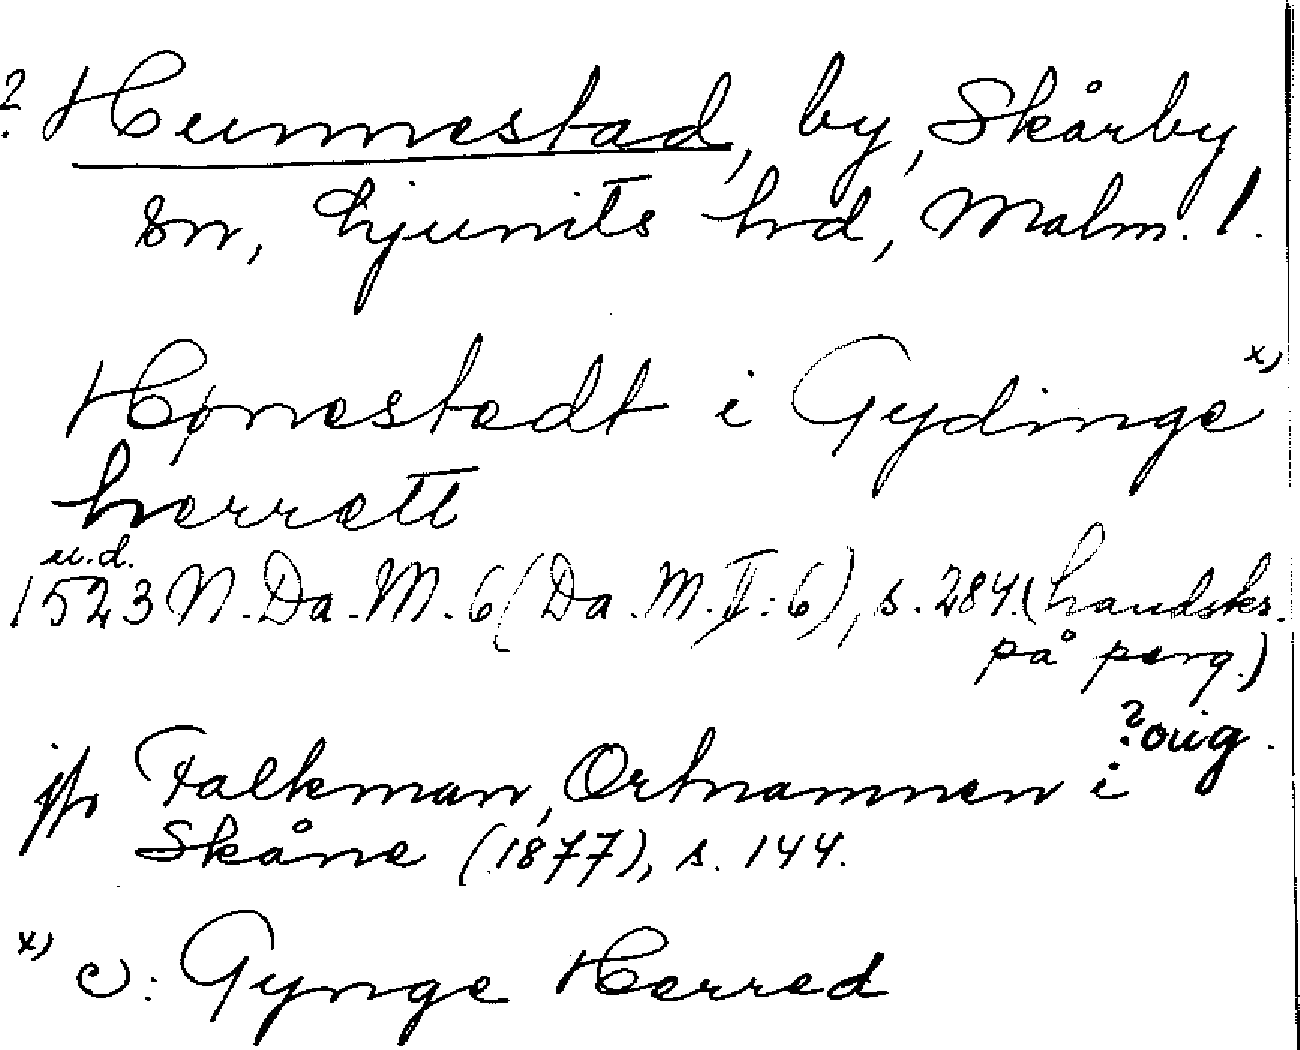 ? Hunnestad, by, Skårby
sn, Ljunits hd, Malm. l.
Hønestedt i Gydinge x)
herrett
u.d.
1523 N. Da. M. 6 (Da. M. II: 6), s. 284. (handskr.
på perg.)
? orig.
jfr Falkman, Ortnamnen i
Skåne (1877), s. 144.
x) ɔ: Gynge Herred